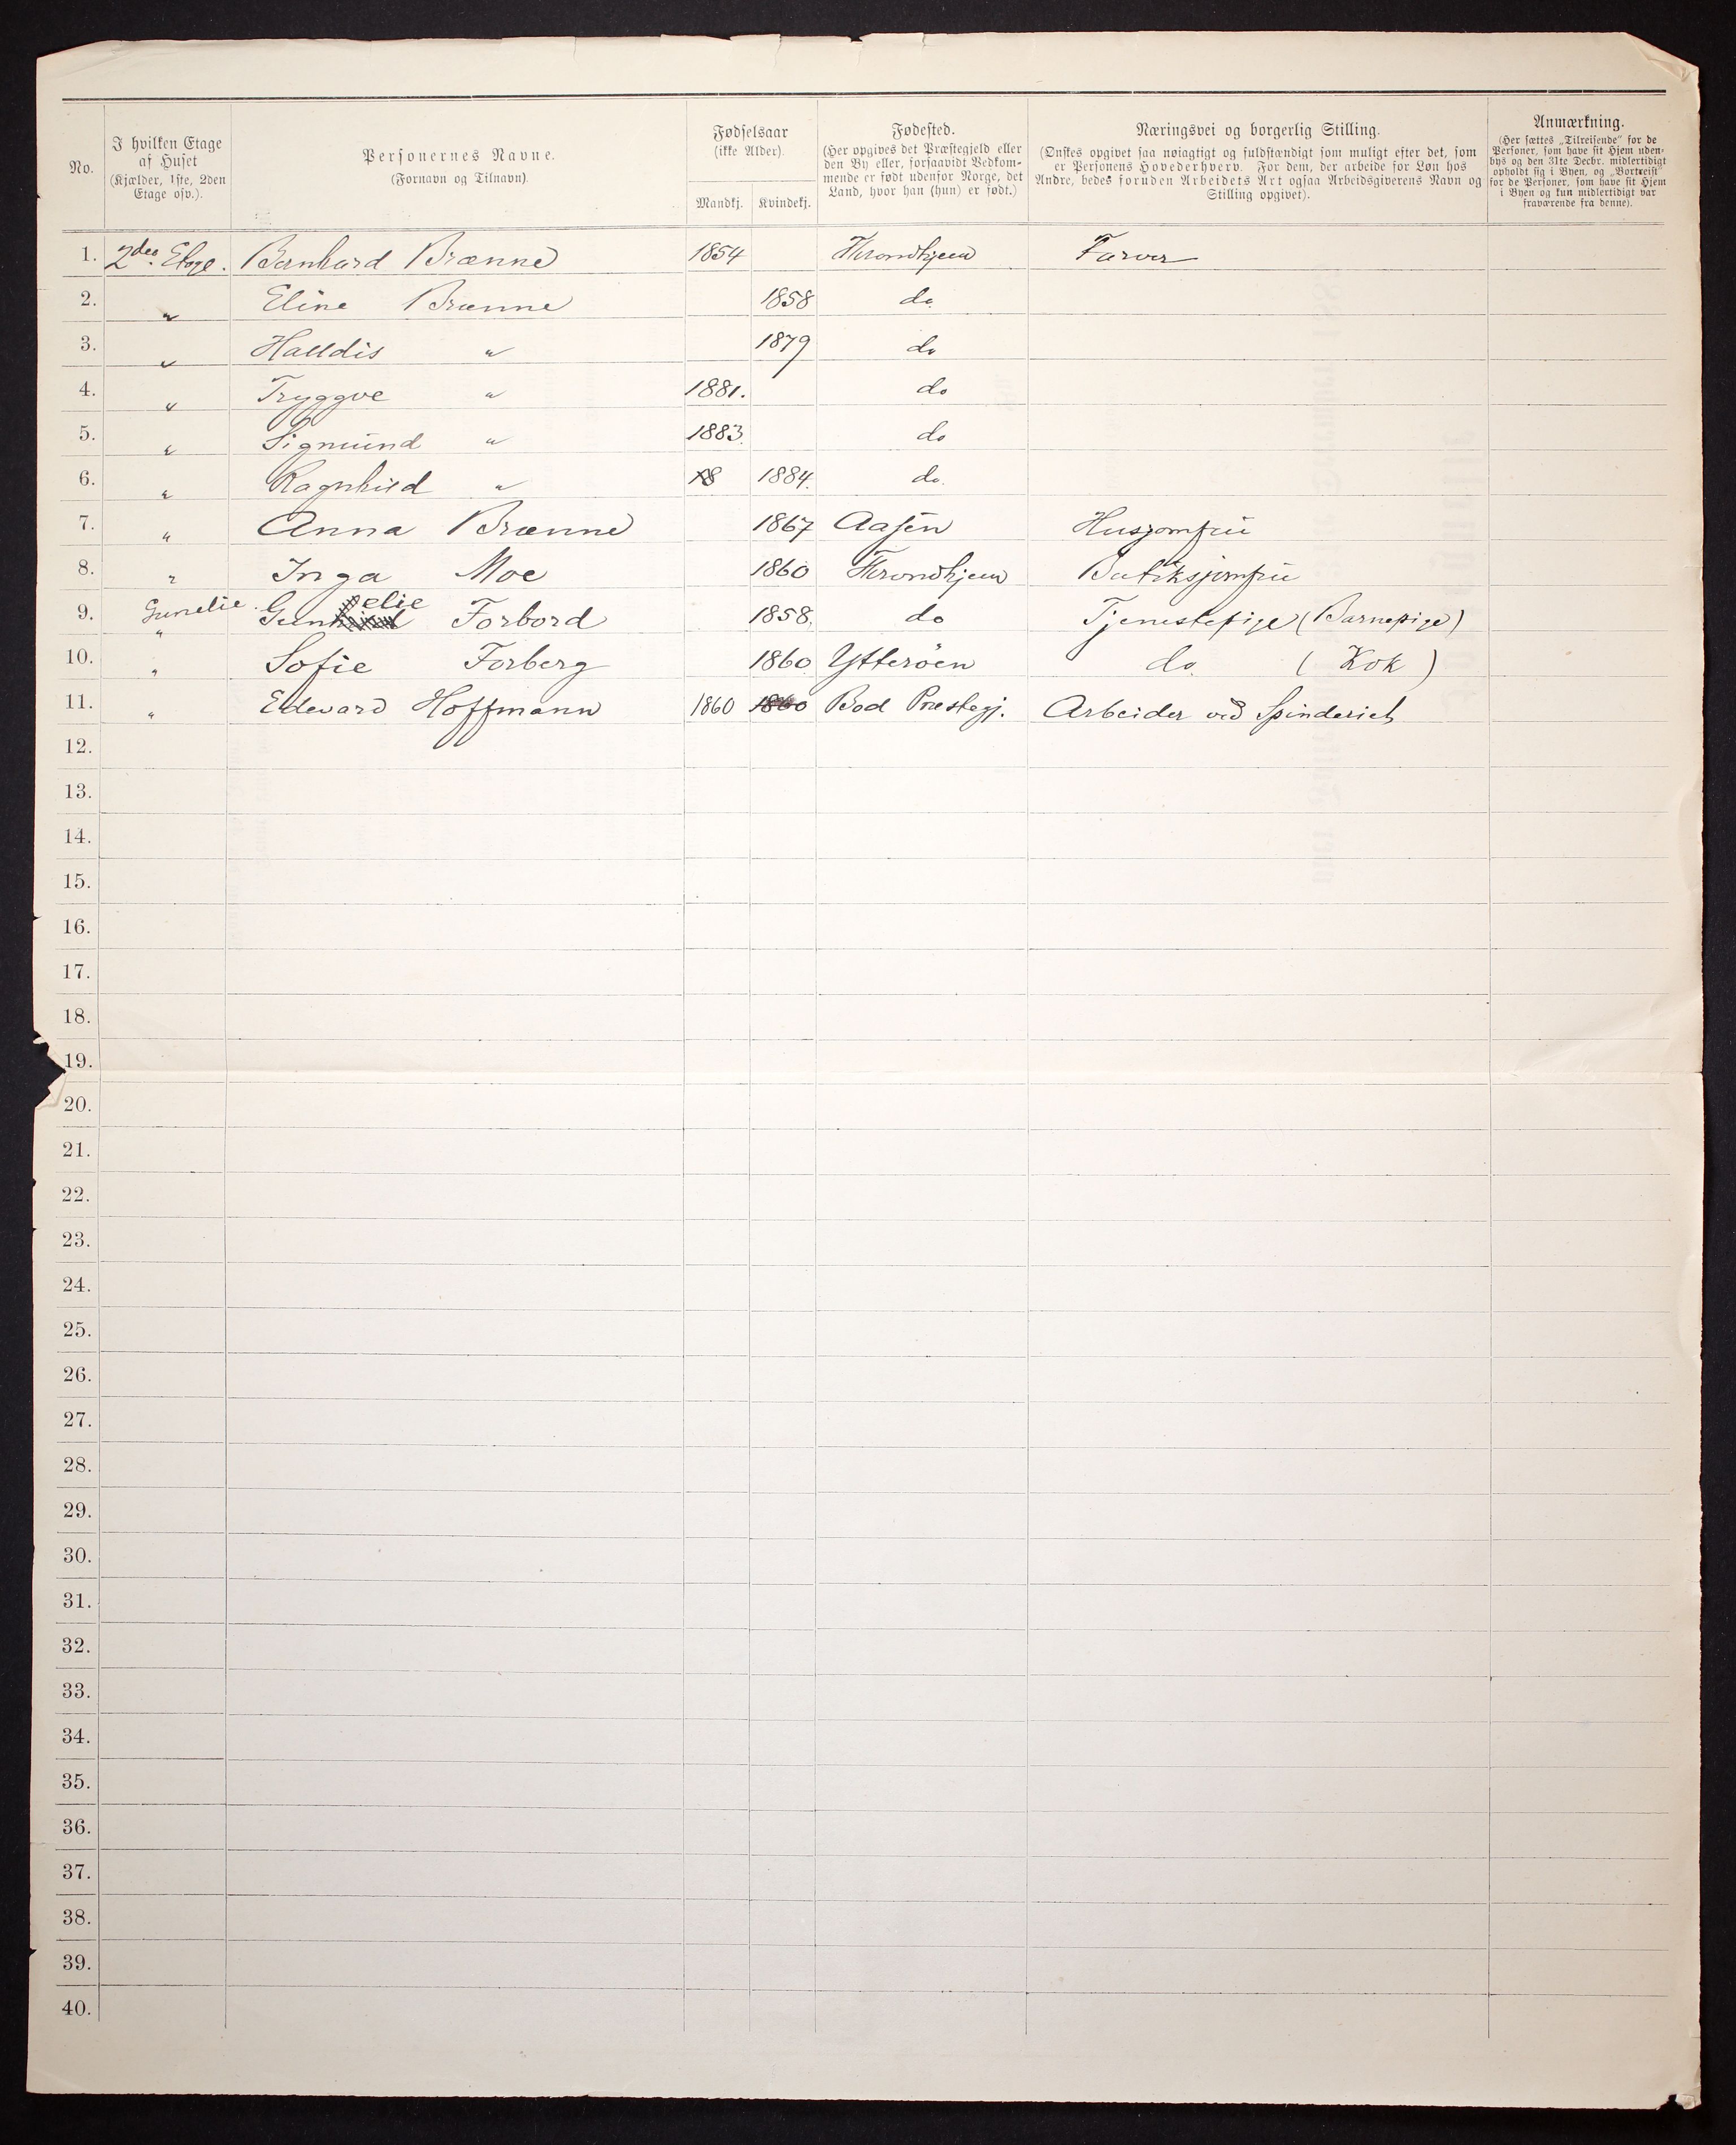 No.
I hvilken Etage af Huset (Kjælder, 1ste, 2den Etage osv.).
Personernes Navne. (Fornavn og Tilnavn).
Fødselsaar (ikke Alder).
Mandkj. Kvindekj.
Fødested. (Her opgives det Præstegjeld eller den By eller, forsaavidt Vedkommende er født udenfor Norge, det Land, hvor han (hun) er født.)
Næringsvei og borgerlig Stilling. (Ønskes opgivet saa nøiagtigt og fuldstændigt som muligt efter det, som er Personens Hovederhverv. For dem, der arbeide for Løn hos Andre, bedes foruden Arbeidets Art ogsaa Arbeidsgiverens Navn og Stilling opgivet).
Anmærkning. (Her sættes „Tilreisende" for de Personer, som have sit Hjem udenbys og den 31te Decbr. midlertidigt opholdt sig i Byen, og „Bortreist" for de Personer, som have sit Hjem i Byen og kun midlertidigt var fraværende fra denne).
1. 2den Etage. Bernhard Brænne 1854 Throndhjem Farver
2. " Eline Brænne 1858 do.
3. " Halldis " 1879 do
4. " Tryggve " 1881. do
5. " Sigmund " 1883. do
6. " Ragnhild " 18 1884. do.
7. " Anna Brænne 1867 Aasen Husjomfru
8. " Inga Moe 1860 Throndhjem Butiksjomfru
9. Gunelie. " Gunelie Forbord 1858. do Tjenestepige (Barnepige)
10. " Sofie Forberg 1860 Ytterøen do. (Kok)
11. " Edevard Hoffmann 1860 1860 Bod Prestegj. Arbeider ved Spinderiet
12.
13.
14.
15.
16.
17.
18.
19.
20.
21.
22.
23.
24.
25.
26.
27.
28.
29.
30.
31.
32.
33.
34.
35.
36.
37.
38.
39.
40.